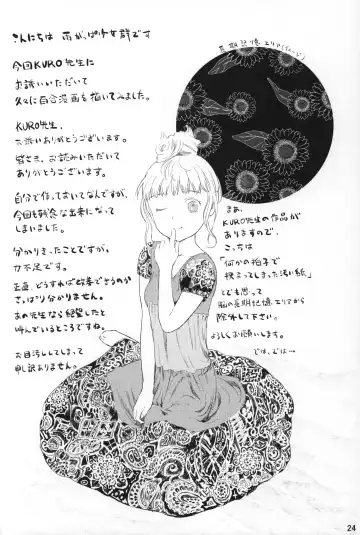 こんにちは 雨がっぱ少女群です
今回KURO先生に
お誘いいただいて
久々に百合漫画を描いてみました。
KURO先生、
お誘いありがとうございます。
皆さま、お読みいただいて
ありがとうございます。
自分で作っておいてなんですが、
今回も残念な出来になって
しまいました。
分かりきったことですが、
力不足です。
正直、どうすれば改善できるのか
さっぱり分かりません。
あの先生なら絶望したと
叫んでいるところですね。
お目汚ししてしまって
申し訳ありません。
長期記憶エリア(イメージ)
まあ、
KURO先生の作品が
ありますので、
こっちは
「何かの拍子で
挟まってしまった汚い紙」
とでも思って
脳の長期記憶エリアから
除外して下さい。
よろしくお願いします。
では、では…
24